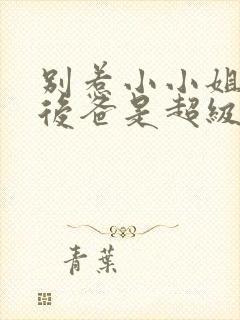 别惹小小姐
後爸是超級
青葉